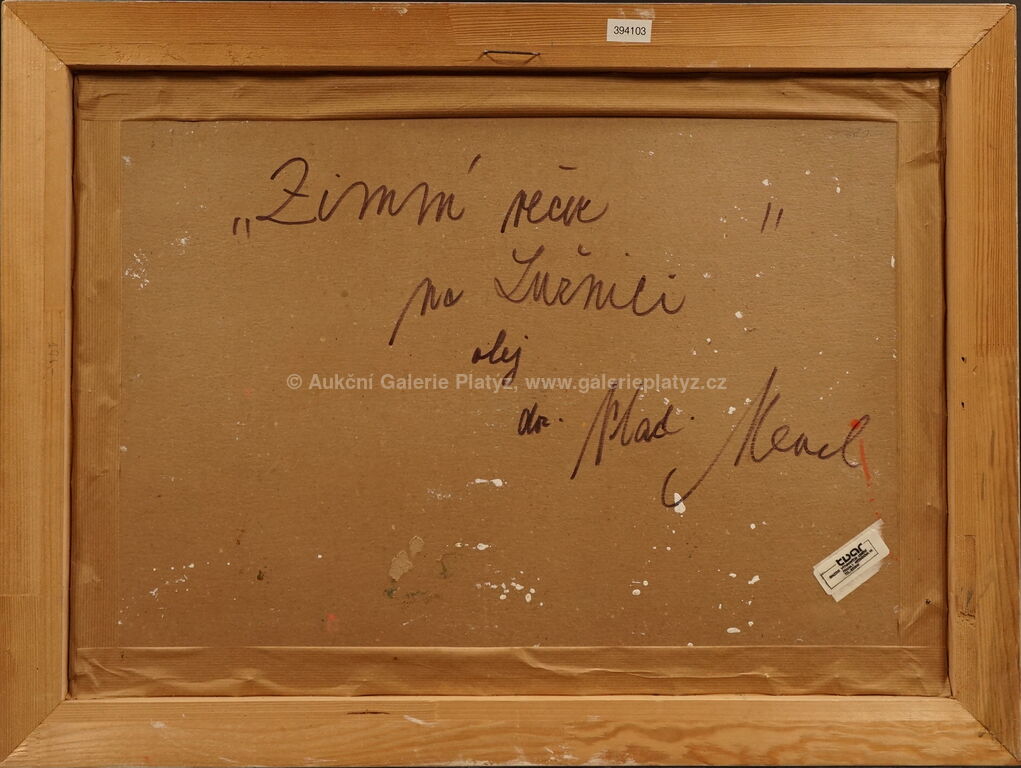 394103
„Zimní večer"
na Lužnici
olej
© Aukční Galerie Platýz, www.galerieplatyz.cz
dr. Vlad. Mencl
tvar